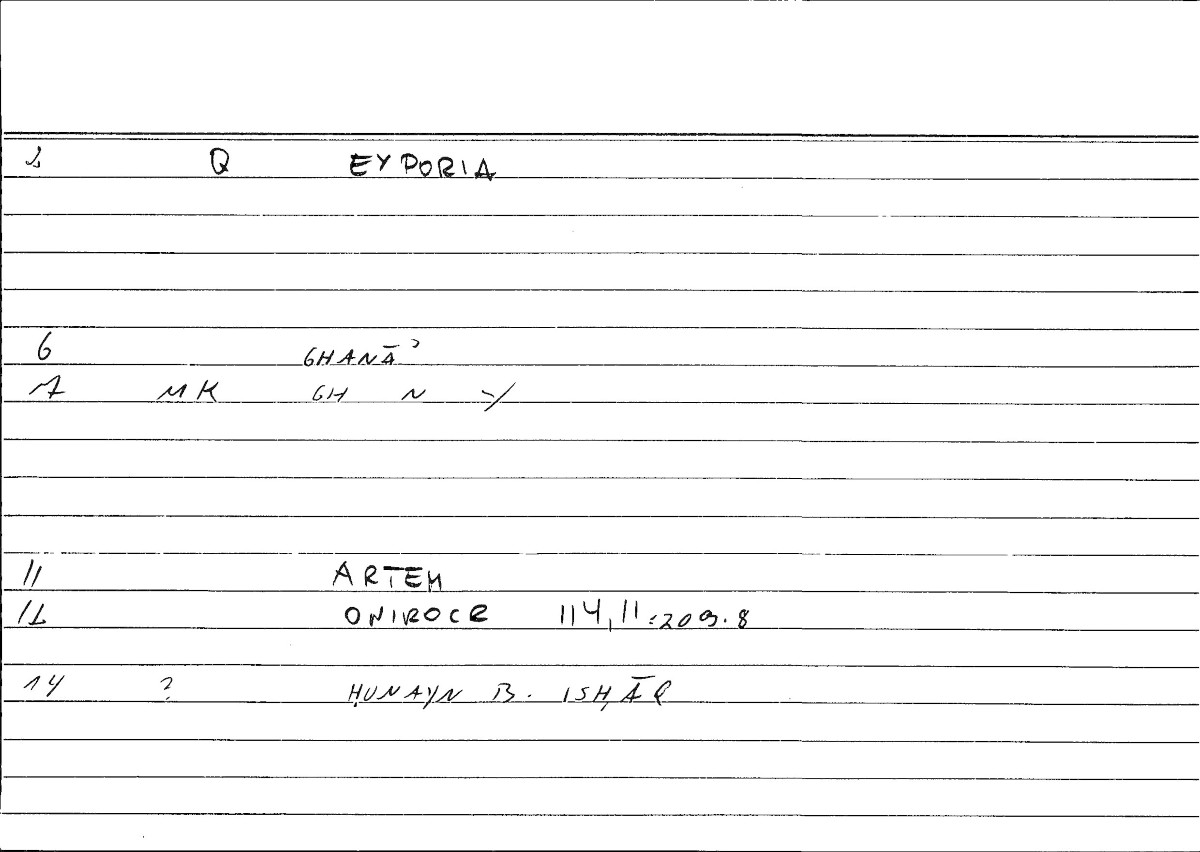 2 Q EYPORIA
6 GHANĀʾ
7 MK GH N -/
11 ARTEM
12 ONIROCR 114,11=209.8
14 ? ḤUNAYN B. ISḤĀQ